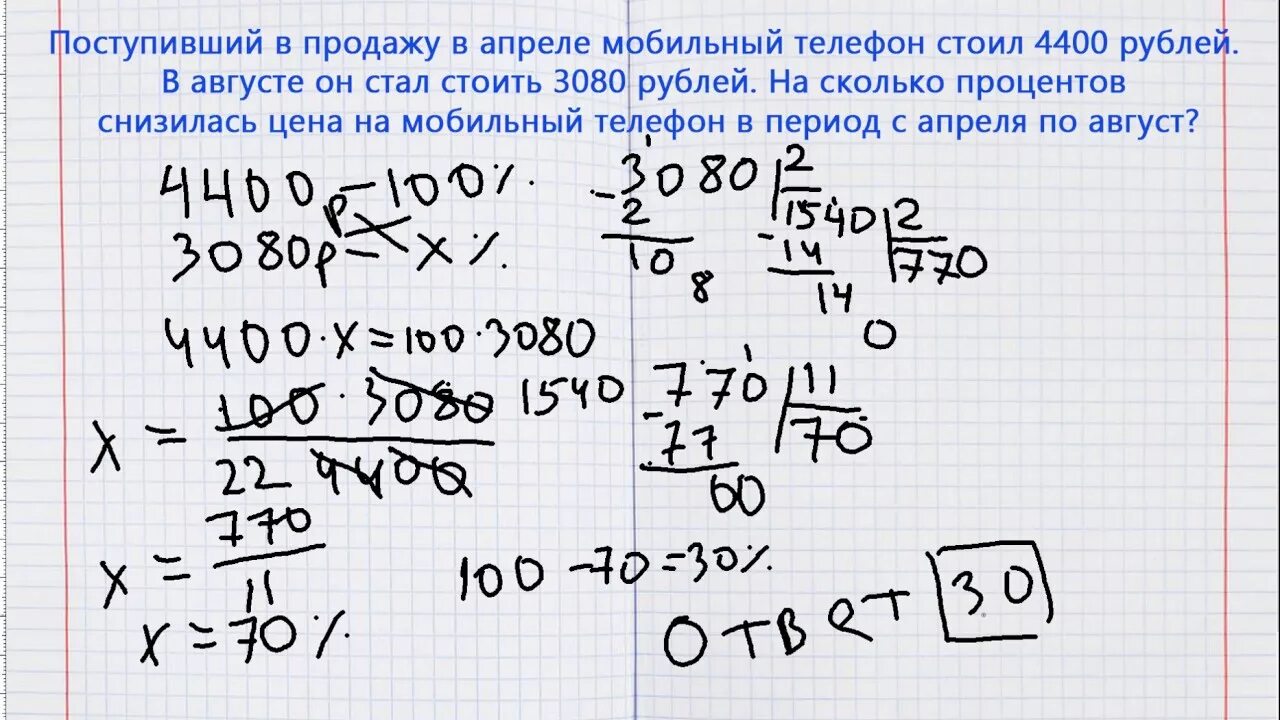 Поступивший в продажу в апреле мобильный телефон стоил 4400 рублей.
В августе он стал стоить 3080 рублей. На сколько процентов
снизилась цена на мобильный телефон в период с апреля по август?
4400р - 100%
3080р - x%
4400·x=100·3080
x = 100·3080 1540
22 4400
x = 770
11
x = 70%
-3080 2
2 1540 2
10 -14 770
8 14
0
770 11
-77 70
00
100-70=30%
Ответ 30